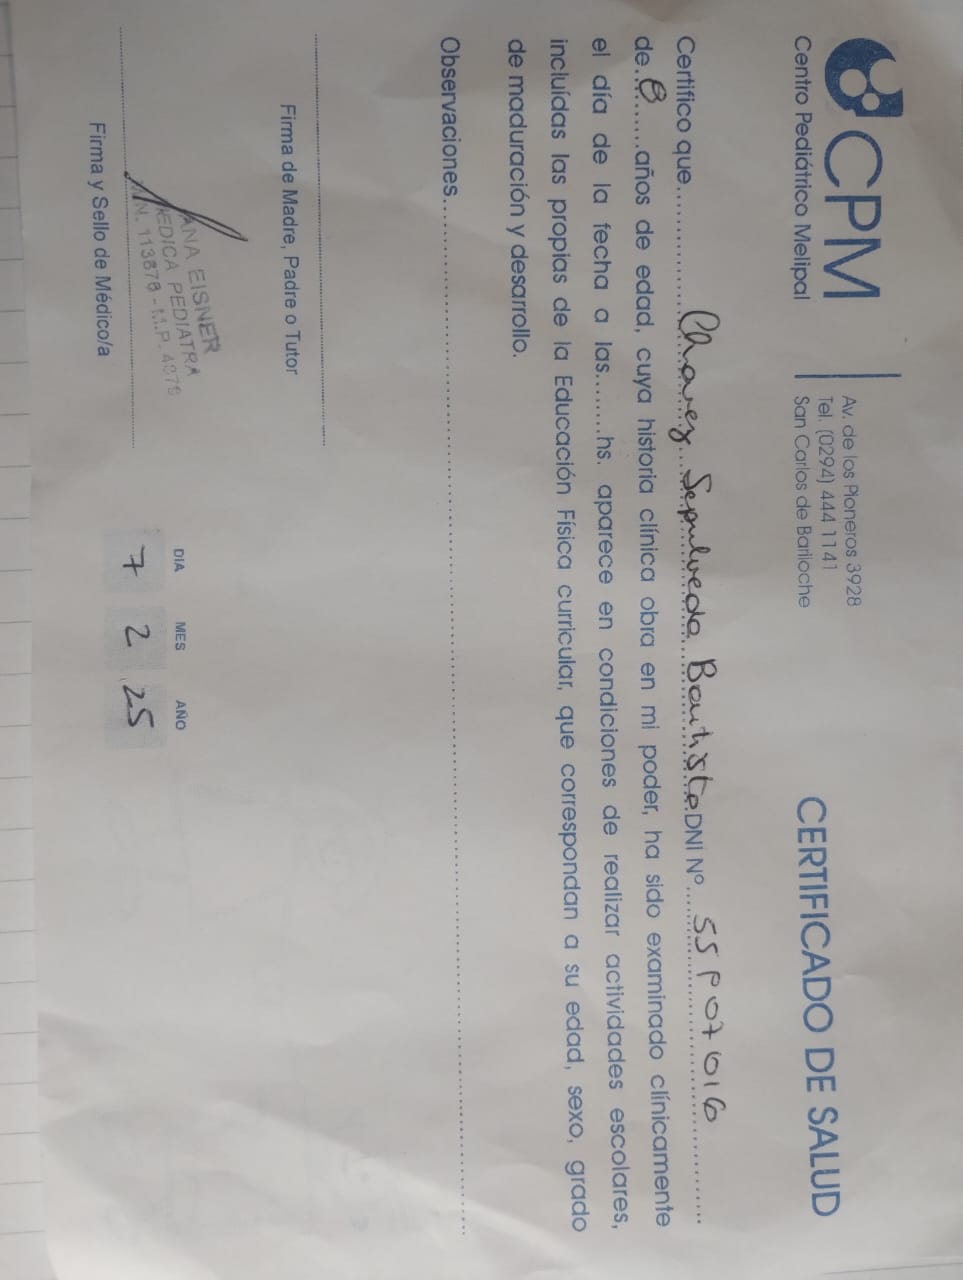 CPM
Centro Pediátrico Melipal
Av. de los Pioneros 3928
Tel. (0294) 444 1141
San Carlos de Bariloche
CERTIFICADO DE SALUD
Certifico que Chavez Sepulveda Bautista DNI Nº
de 8 años de edad, cuya historia clínica obra en mi poder, ha sido examinado clínicamente
el día de la fecha a las........hs. aparece en condiciones de realizar actividades escolares,
incluídas las propias de la Educación Física curricular, que correspondan a su edad, sexo, grado
de maduración y desarrollo.
Observaciones
Firma de Madre, Padre o Tutor
ANA EISNER
MEDICA PEDIATRA
M.N. 113878 - M.P. 4079
Firma y Sello de Médico/a
DIA MES AÑO
7 2 25